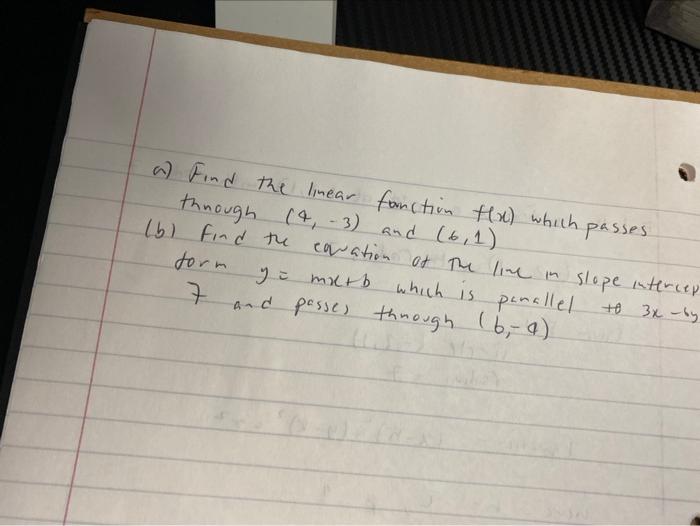 a) Find the linear function f(x) which passes
through (4, -3) and (6, 1)
(b) Find the equation of the line in slope intercep
form y = mx+b which is parallel to 3x - 6y
7 and passes through (6, -4)